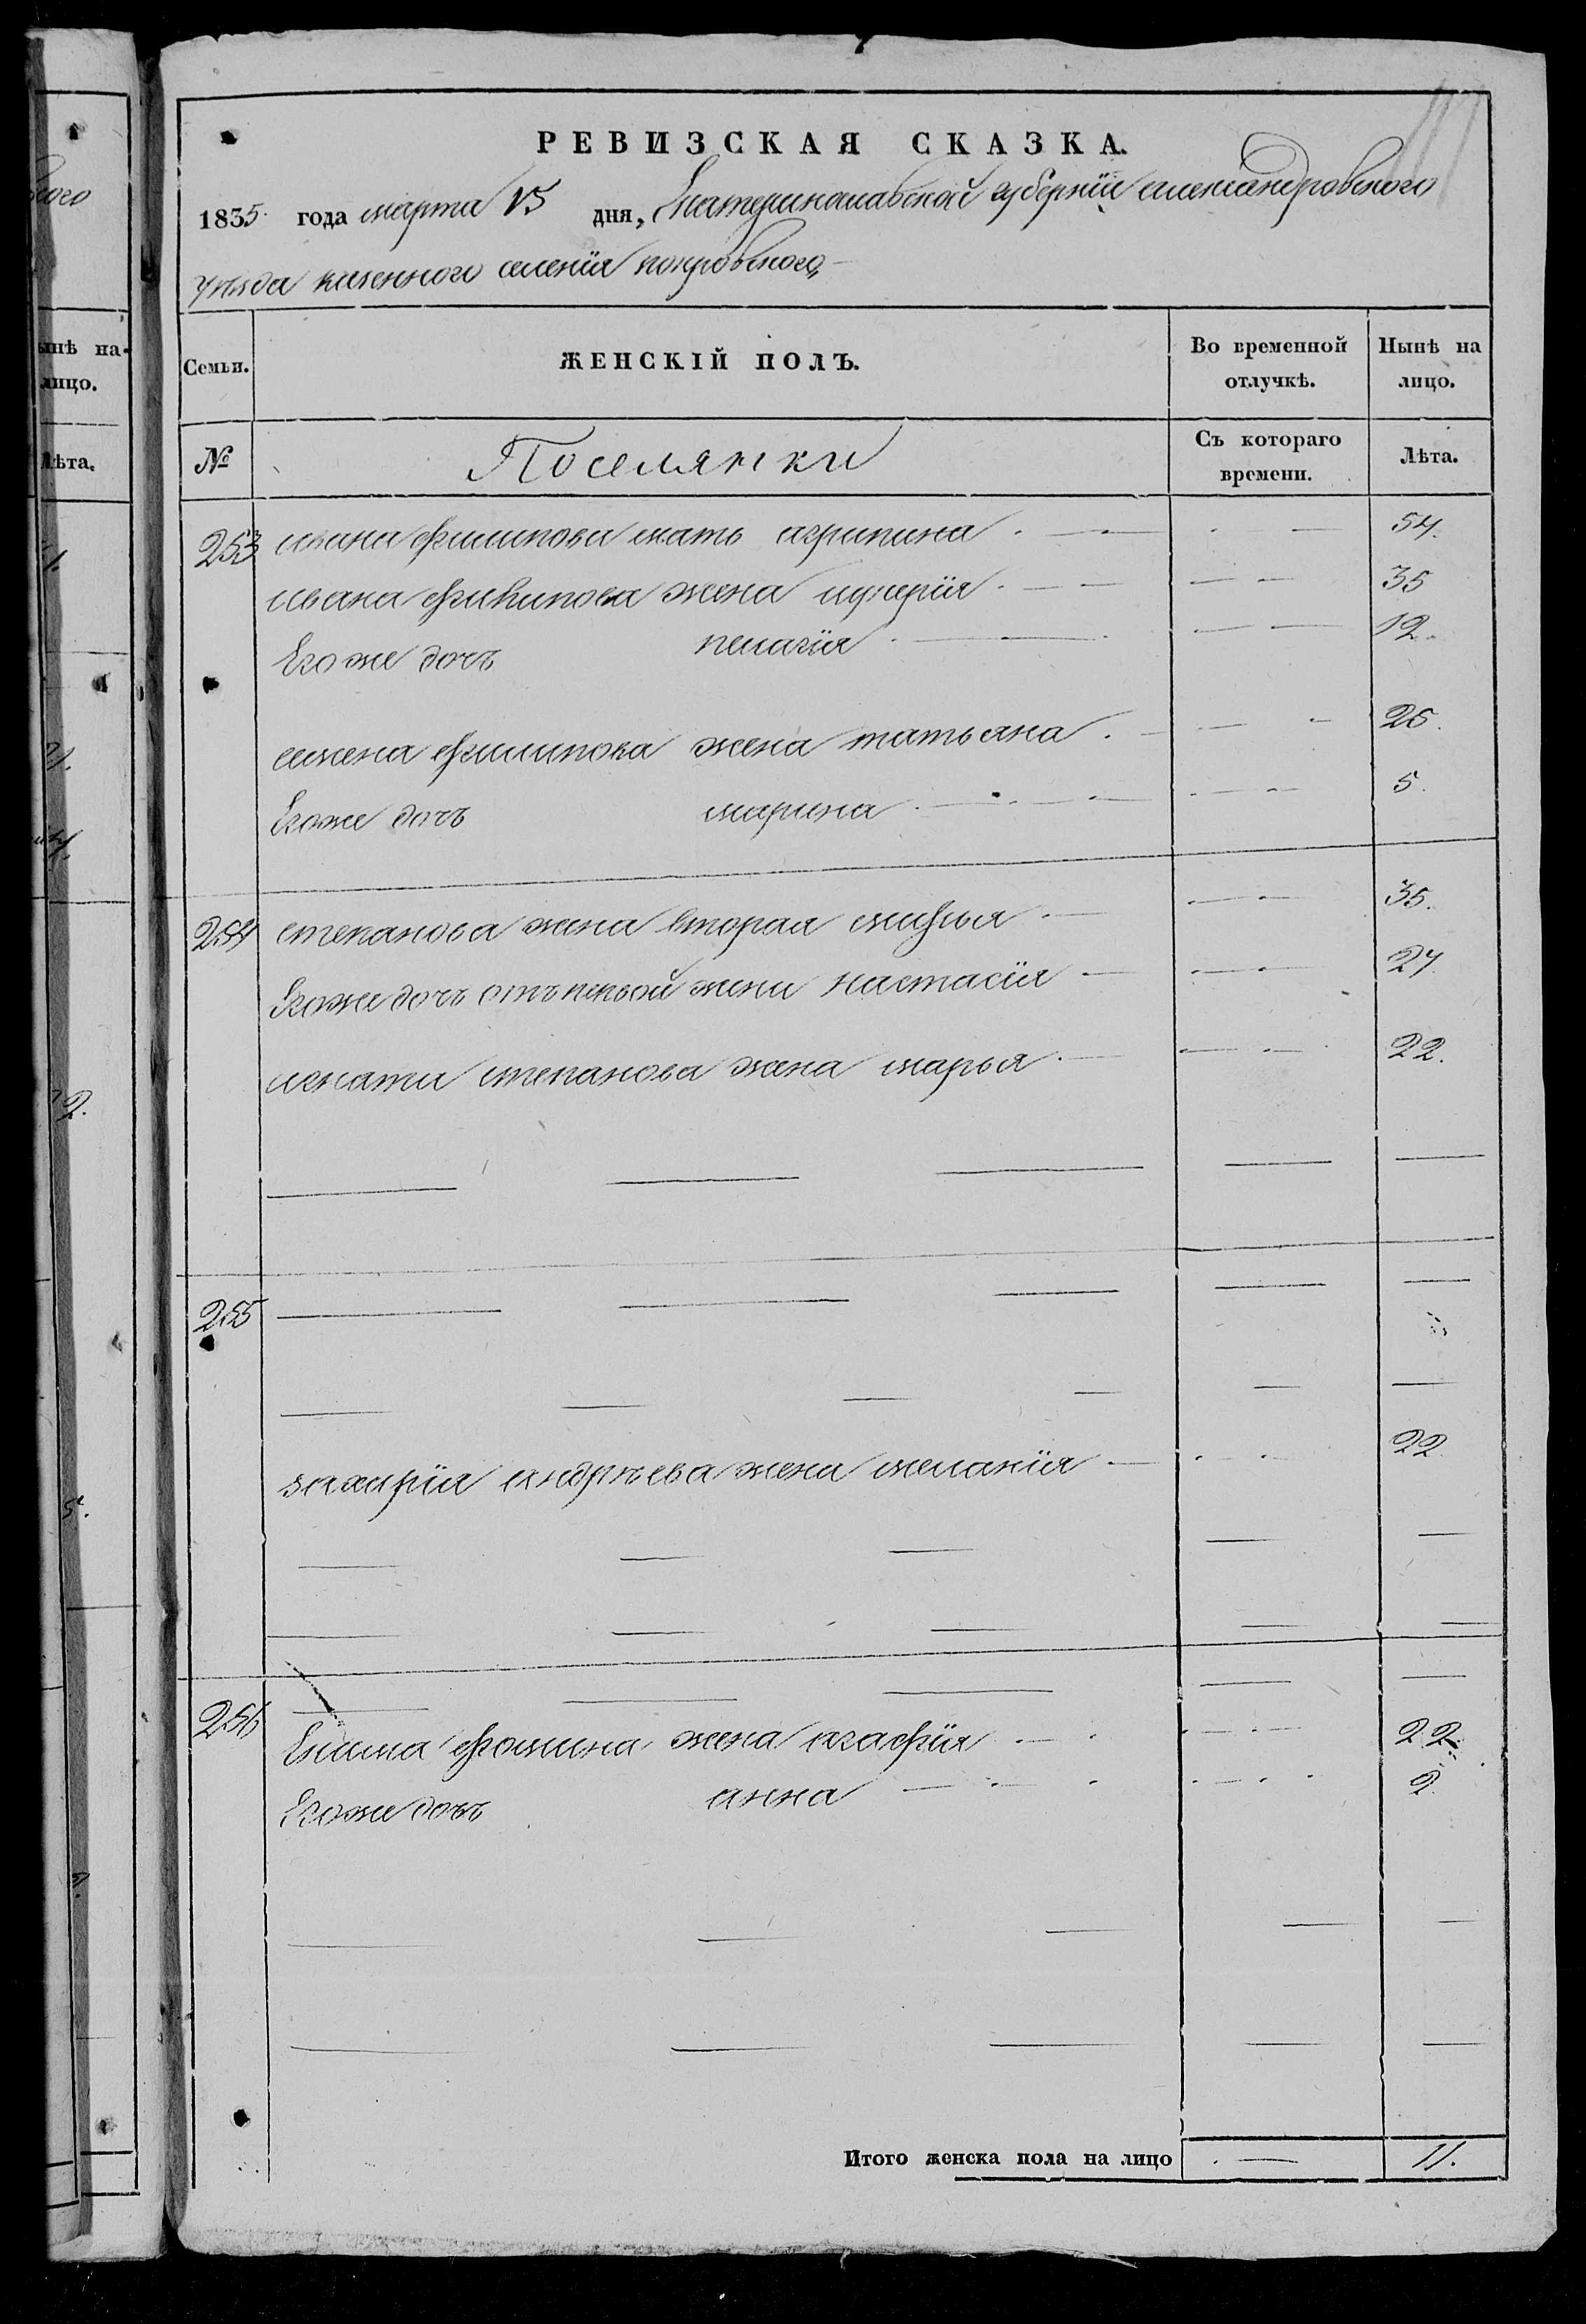 РЕВИЗСКАЯ СКАЗКА.
1835. года марта 15 дня, Екатеринославской губернїи александровского
уезда казенного селенїя покровского
Семьи.
ЖЕНСКІЙ ПОЛЪ.
Во временной отлучкѣ.
Нынѣ на лицо.
№
Поселянки
Съ котораго времени.
Лѣта.
253 ивана филипова мать агрипина 54.
ивана филипова жена 35
Егоже дочь пелагїя 12.
семена филипова жена татьяна 25.
Егоже дочь марина 5.
254 степанова жена вторая марья 35.
Егоже дочь отъ первой жены настасїя 27.
игната степанова жена марья 22.
255
захарїя андрѣева жена меланїя 22
256
Екима фомина жена агафїя 22.
Егоже дочь анна 2.
Итого женска пола на лицо 11.
ынѣ на-
лицо.
Лѣта.